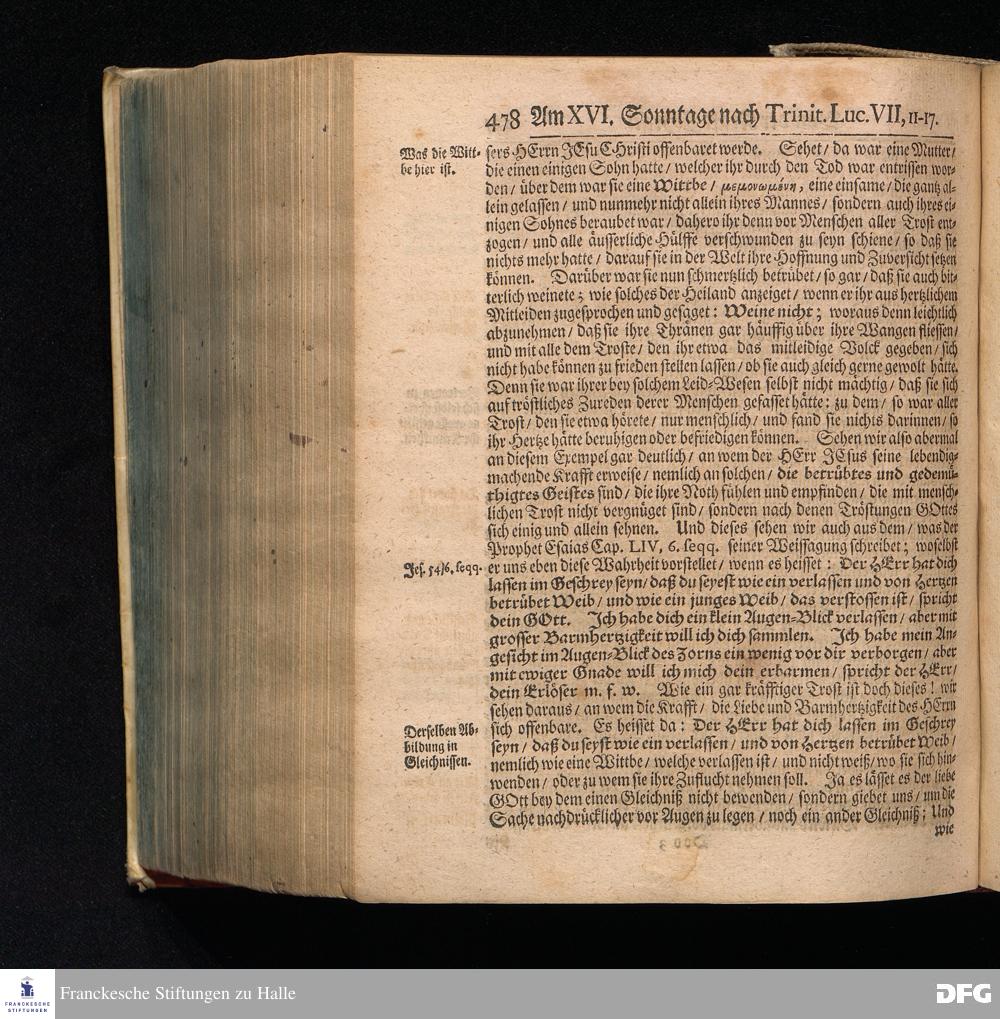 478 Am XVI. Sonntage nach Trinit. Luc. VII, 11-17.
Was die Witt-
be hier ist.
sers HErrn JEsu CHristi offenbaret werde. Sehet/ da war eine Mutter/
die einen einigen Sohn hatte/ welcher ihr durch den Tod war entrissen wor-
den/ über dem war sie eine Wittbe/ μεμονωμένη, eine einsame/ die gantz al-
lein gelassen/ und nunmehr nicht allein ihres Mannes/ sondern auch ihres ei-
nigen Sohnes beraubet war/ dahero ihr denn vor Menschen aller Trost ent-
zogen/ und alle äusserliche Hülffe verschwunden zu seyn schiene/ so daß sie
nichts mehr hatte/ darauf sie in der Welt ihre Hoffnung und Zuversicht setzen
können. Darüber war sie nun schmertzlich betrübet/ so gar/ daß sie auch bit-
terlich weinete; wie solches der Heiland anzeiget/ wenn er ihr aus hertzlichem
Mitleiden zugesprochen und gesaget: Weine nicht; woraus denn leichtlich
abzunehmen/ daß sie ihre Thränen gar häuffig über ihre Wangen fliessen/
und mit alle dem Troste/ den ihr etwa das mitleidige Volck gegeben/ sich
nicht habe können zu frieden stellen lassen/ ob sie auch gleich gerne gewolt hätte.
Denn sie war ihrer bey solchem Leid-Wesen selbst nicht mächtig/ daß sie sich
auf tröstliches Zureden derer Menschen gefasset hätte: zu dem/ so war aller
Trost/ den sie etwa hörete/ nur menschlich/ und fand sie nichts darinnen/ so
ihr Hertze hätte beruhigen oder befriedigen können. Sehen wir also abermal
an diesem Exempel gar deutlich/ an wem der HErr JEsus seine lebendig-
machende Krafft erweise/ nemlich an solchen/ die betrübtes und gedemü-
thigtes Geistes sind/ die ihre Noth fühlen und empfinden/ die mit mensch-
lichen Trost nicht vergnüget sind/ sondern nach denen Tröstungen GOttes
sich einig und allein sehnen. Und dieses sehen wir auch aus dem/ was der
Prophet Esaias Cap. LIV, 6. seqq. seiner Weissagung schreibet; woselbst
Jes. 54/6. seqq.
er uns eben diese Wahrheit vorstellet/ wenn es heisset: Der HErr hat dich
lassen im Geschrey seyn/ daß du seyest wie ein verlassen und von Hertzen
betrübet Weib/ und wie ein junges Weib/ das verstossen ist/ spricht
dein GOtt. Ich habe dich ein klein Augen-Blick verlassen/ aber mit
grosser Barmhertzigkeit will ich dich sammlen. Ich habe mein An-
gesicht im Augen-Blick des Zorns ein wenig vor dir verborgen/ aber
mit ewiger Gnade will ich mich dein erbarmen/ spricht der HErr/
dein Erlöser m. f. w. Wie ein gar kräfftiger Trost ist doch dieses! wir
sehen daraus/ an wem die Krafft/ die Liebe und Barmhertzigkeit des HErrn
Derselben Ab-
bildung in
Gleichnissen.
sich offenbare. Es heisset da: Der HErr hat dich lassen im Geschrey
seyn/ daß du seyst wie ein verlassen/ und von Hertzen betrübet Weib/
nemlich wie eine Wittbe/ welche verlassen ist/ und nicht weiß/ wo sie sich hin-
wenden/ oder zu wem sie ihre Zuflucht nehmen soll. Ja es lässet es der liebe
GOtt bey dem einen Gleichniß nicht bewenden/ sondern giebet uns/ um die
Sache nachdrücklicher vor Augen zu legen/ noch ein ander Gleichniß; Und
wie
FRANCKESCHE
STIFTUNGEN
Franckesche Stiftungen zu Halle
DFG